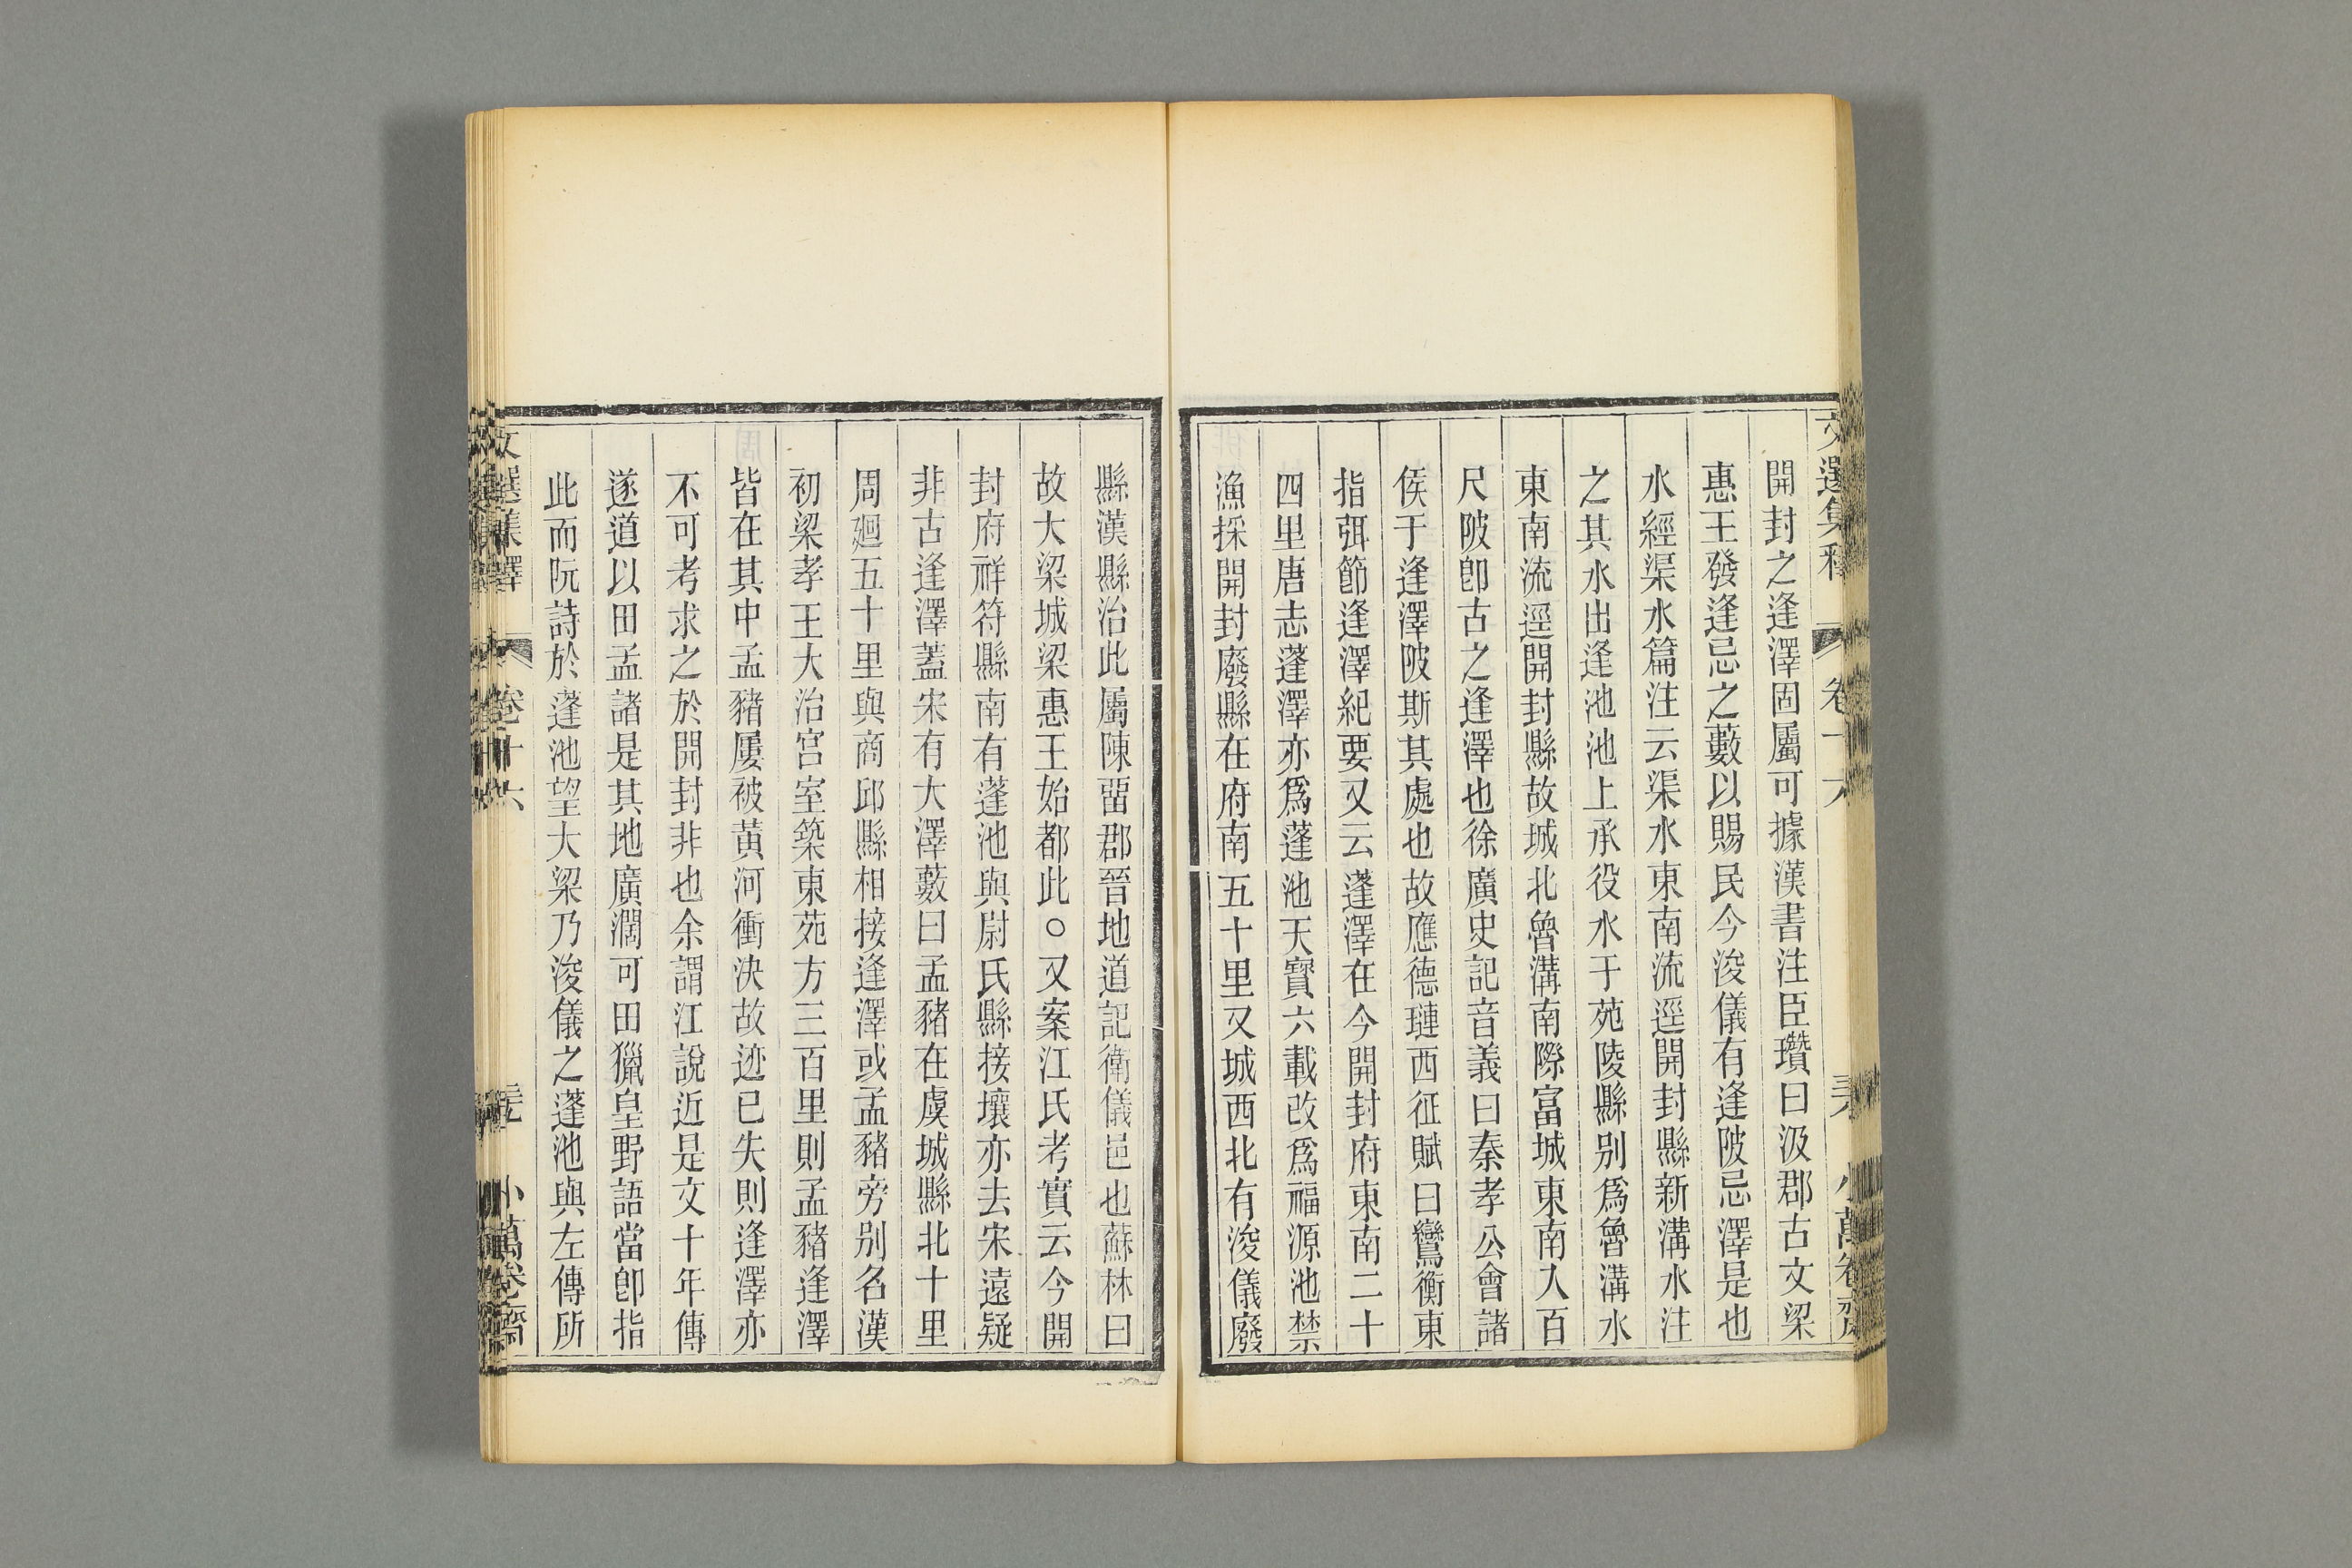 文選集釋 卷十六 小萬卷齋
開封之逢澤固屬可據漢書注臣瓚曰汲郡古文梁
惠王發逢忌之藪以賜民今浚儀有逢陂忌澤是也
水經渠水篇注云渠水東南流逕開封縣新溝水注
之其水出逢池池上承役水于苑陵縣別爲魯溝水
東南流逕開封縣故城北魯溝南際富城東南入百
尺陂卽古之逢澤也徐廣史記音義曰秦孝公會諸
侯于逢澤陂斯其處也故應德璉西征賦曰鸞衡東
指弭節逢澤紀要又云蓬澤在今開封府東南二十
四里唐志蓬澤亦爲蓬池天寶六載改爲福源池禁
漁採開封廢縣在府南五十里又城西北有浚儀廢
縣漢縣治此屬陳畱郡晉地道記衛儀邑也蘇林曰
故大梁城梁惠王始都此○又案江氏考實云今開
封府祥符縣南有蓬池與尉氏縣接壤亦去宋遠疑
非古逢澤蓋宋有大澤藪曰孟豬在虞城縣北十里
周廻五十里與商邱縣相接逢澤或孟豬旁別名漢
初梁孝王大治宮室築東苑方三百里則孟豬逢澤
皆在其中孟豬屢被黃河衝決故迹已失則逢澤亦
不可考求之於開封非也余謂江說近是文十年傳
遂道以田孟諸是其地廣濶可田獵皇野語當卽指
此而阮詩於蓬池望大梁乃浚儀之蓬池與左傳所
文選集釋 卷十六 小萬卷齋